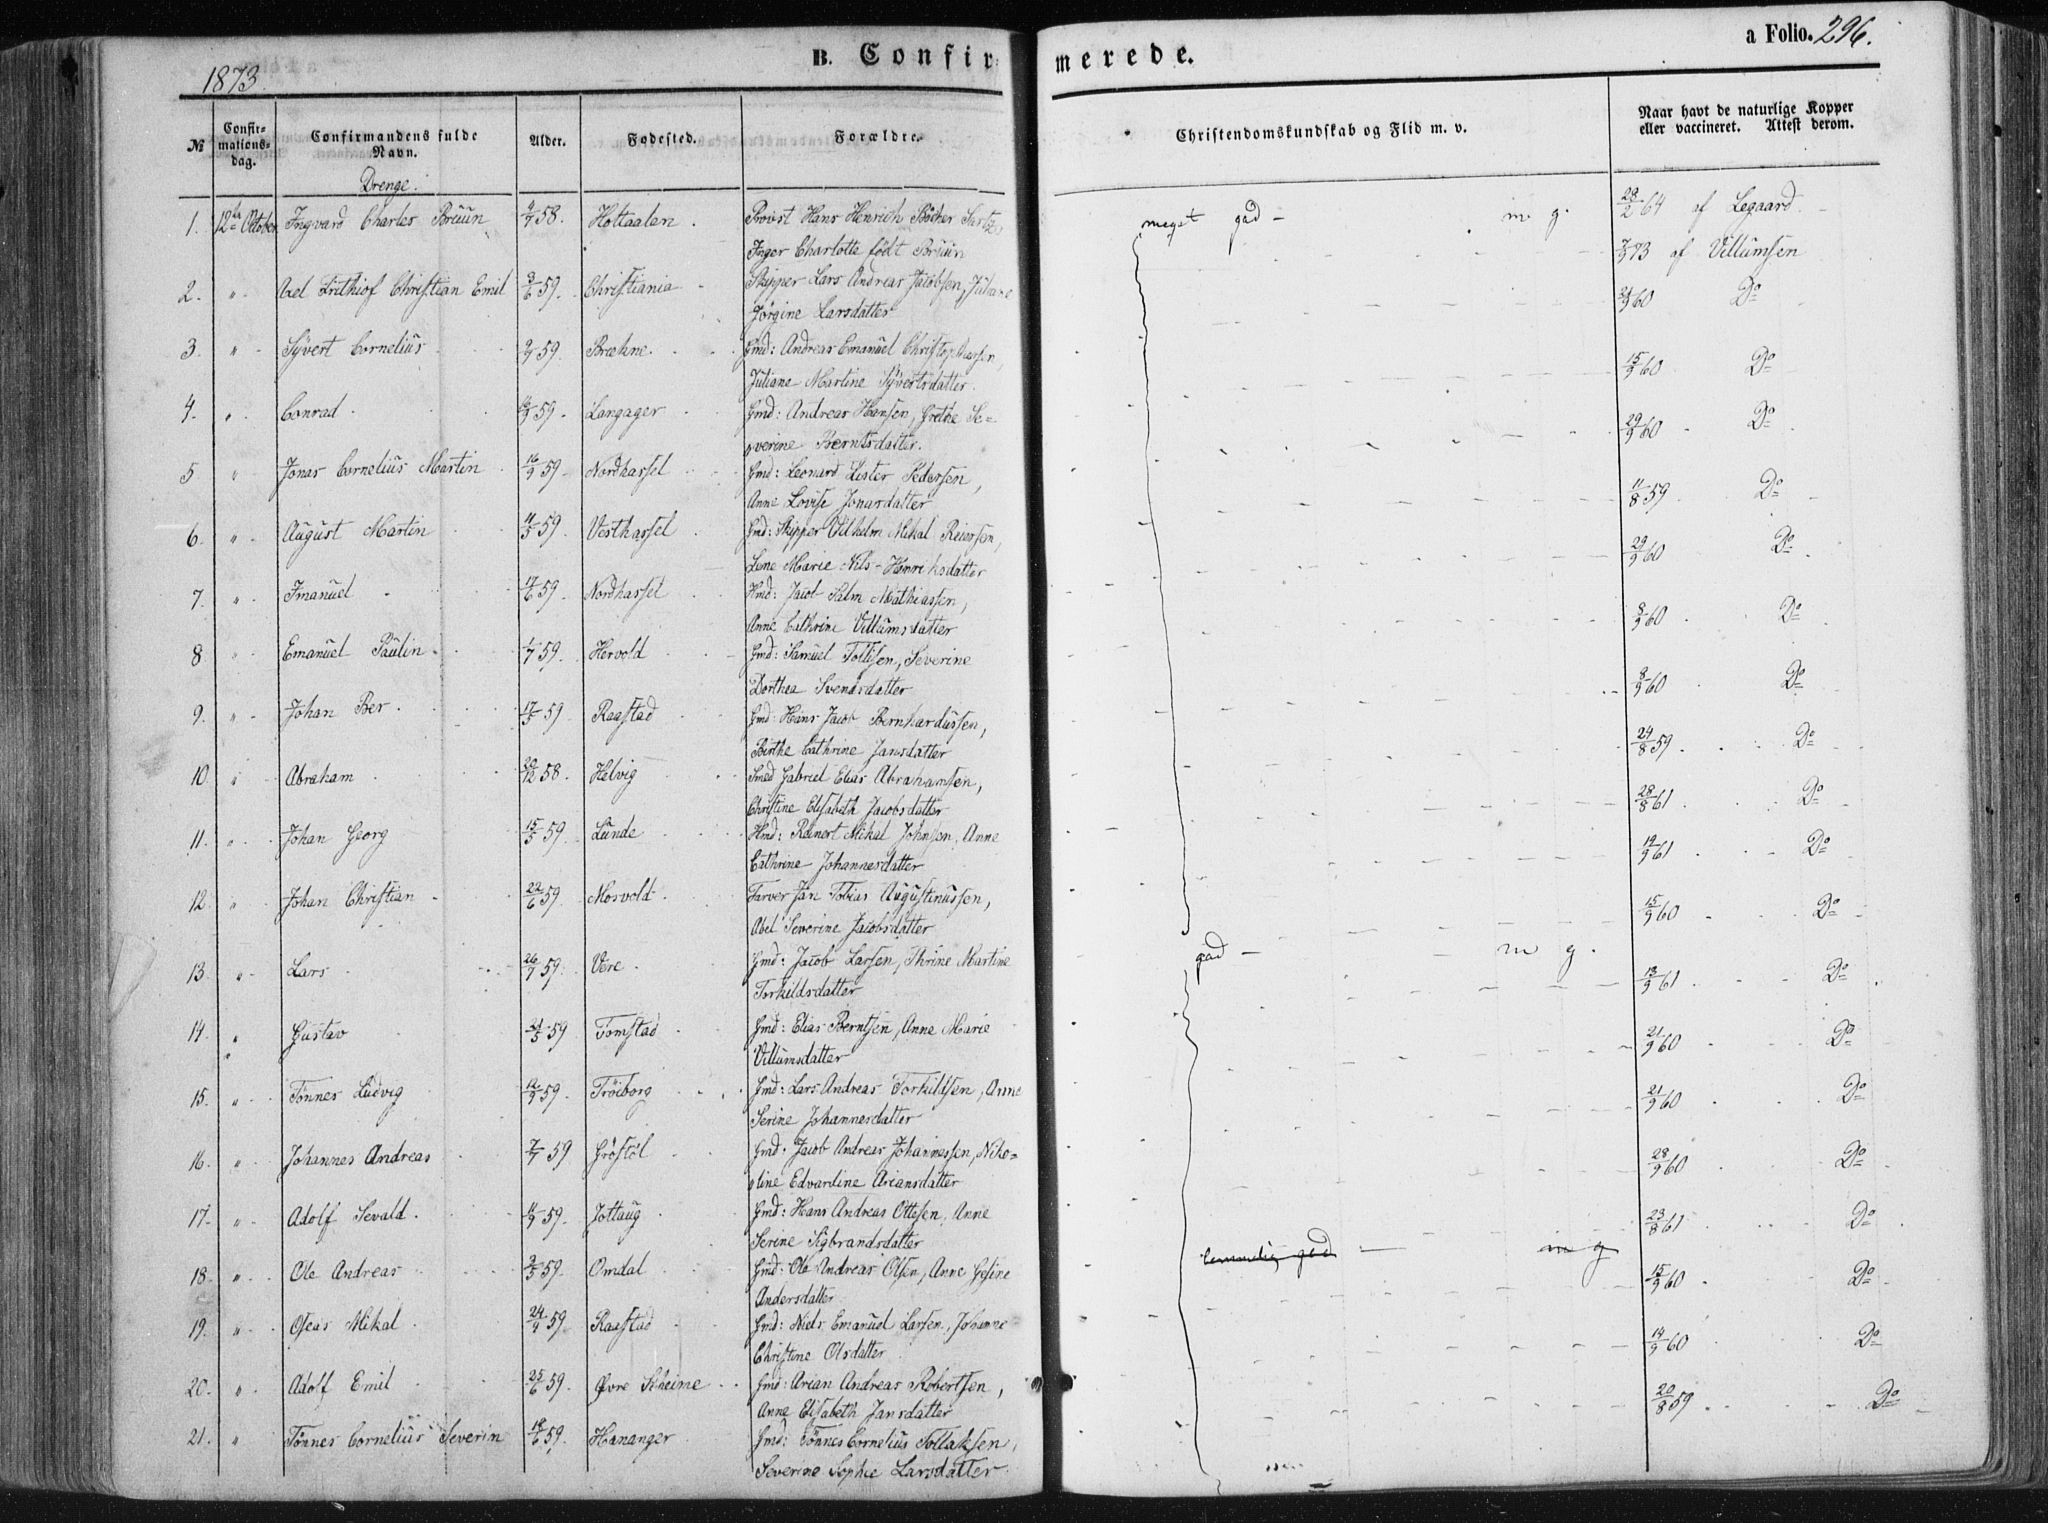 1873.
B. Confir-
merede.
a Folio. 296.
№
Confir-
mations-
dag.
Confirmandens fulde
Navn.
Alder.
Fødested.
Forældre.
Christendomskundskab og Flid m. v.
Naar havt de naturlige Kopper
eller vaccineret. Attest derom.
Drenge.
1. 12te Oktober. Ingvard Charles Bruun 4/7 58. Holtaalen Provst Hans Henrich Böcher meget god - m g. 28/2 64 af Legaard.
Inger Charlotte födt Bruun 7/3 73 af Villumsen
2. " Axel Frithiof Christian Emil 8/6 59. Christiania Skipper Lars Andreas Jacobsen, Juliane 21/9 60 Do
Jørgine Larsdatter
3. " Syvert Cornelius 2/7 59. Brekne Gmd: Andreas Emanuel Christophersen, 15/9 60 Do
Juliane Martine Syvertsdatter.
4. " Conrad 59. Langager Gmd: Andreas Hansen, Grethe Se= 29/9 60 Do
verine Berntsdatter.
5 " Jonas Cornelius Martin 16/9 59. Nordhassel Gmd: Leonard Lister Pedersen, 11/8 59 Do
Anne Lovise Jonasdatter
6. " August Martin 11/5 59. Vesthassel Gmd: Skipper Vilhelm Mikal Reiersen, 29/9 60 Do
Lene Marie Nils-Henriksdatter
7. " Imanuel 17/6 59. Nordhassel Hmd: Jacob Salm Mathiassen, 8/9 60 Do
Anne Cathrine Villumsdatter
8 " Emanuel Paulin 1/7 59. Hervold Gmd: Samuel Tollisen, Severine 8/9 60 Do
Dorthea Svendsdatter
9. " Johan Ber 17/5 59 Raastad Gmd: Hans Jacob Bernhardussen, 24/8 59 Do
Birthe Cathrine Jansdatter
10 " Abraham 20/12 58. Helvig Smed Gabriel Elias Abrahamsen, 28/8 61 Do
Christine Elisabeth Jacobsdatter
11. " Johan Georg 15/5 59. Lunde Hmd: Reinert Mikal Johnsen, Anne 19/9 61 Do
Cathrine Johannesdatter
12. " Johan Christian 22/6 59. Mosvold Farver Jan Tobias Augustinussen, 15/9 60 Do
Abel Severine Jacobsdatter
13. " Lars 26/7 59. Vere Gmd: Jacob Larsen, Thrine Martine god - m g. 13/9 61 Do
Torkildsdatter
14 " Gustav 21/5 59 Tomstad Gmd: Elias Berntsen, Anne Marie 21/9 60 Do
Villumsdatter
15. " Tönnes Ludvig 12/9 59. Tröiborg Gmd: Lars Andreas Torkildsen, Anne 21/9 60 Do
Serine Johannesdatter
16. " Johannes Andreas 7/7 59 Gröstöl Gmd: Jacob Andreas Johannessen, Niko= 28/9 60 Do
line Edvardine Ariansdatter
17. " Adolf Sevald 59. Jöllaug Gmd: Hans Andreas Ottesen, Anne 23/8 61 Do
Serine Sigbrandsdatter
18. " Ole Andreas 3/5 59. Omdal Gmd: Ole Andreas Olsen, Anne Gesine temmelig god - m g 15/9 60 Do
Andersdatter
19. " Oseas Mikal 24/9 59. Raastad Gmd: Niels Emanuel Larsen, Johanne 14/9 60 Do
Christine Olsdatter
20. " Adolf Emil 25/6 59. Øvre Skeime Gmd: Arian Andreas Robertsen, 20/8 59 Do
Anne Elisabeth Jansdatter
21. " Tönnes Cornelius Severin 18/6 59. Hananger Gmd: Tönnes Cornelius Tollaksen,
Severine Sophie Larsdatter.